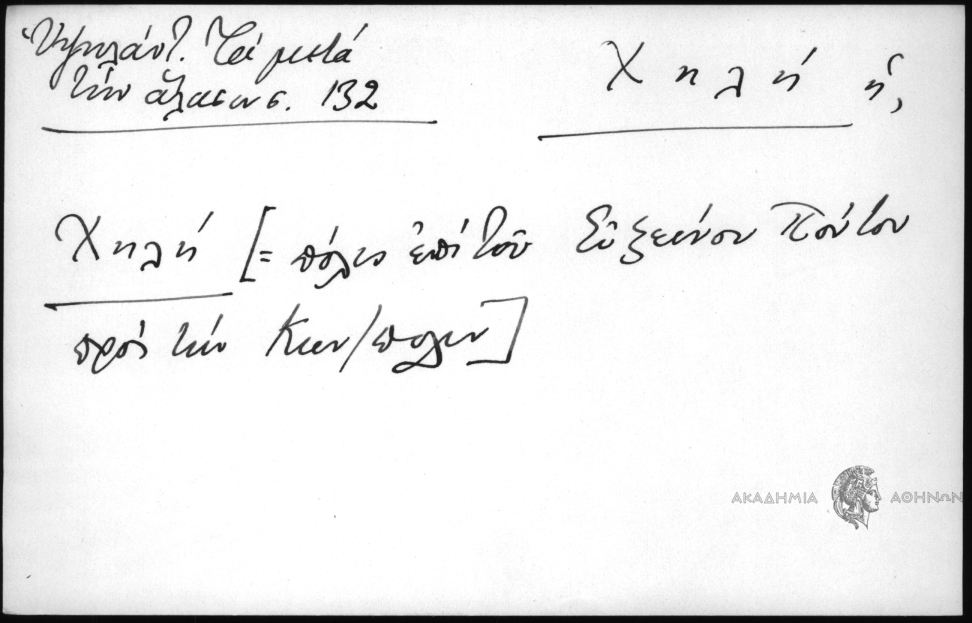 Ὑψηλάντ. Τά μετά
τήν ἅλωσιν σ. 132
Χηλή ἡ,
Χηλή [= πόλις ἐπί τοῦ Εὐξείνου Πόντου
πρός τήν Κων/πολιν]
ΑΚΑΔΗΜΙΑ ΑΘΗΝΩΝ